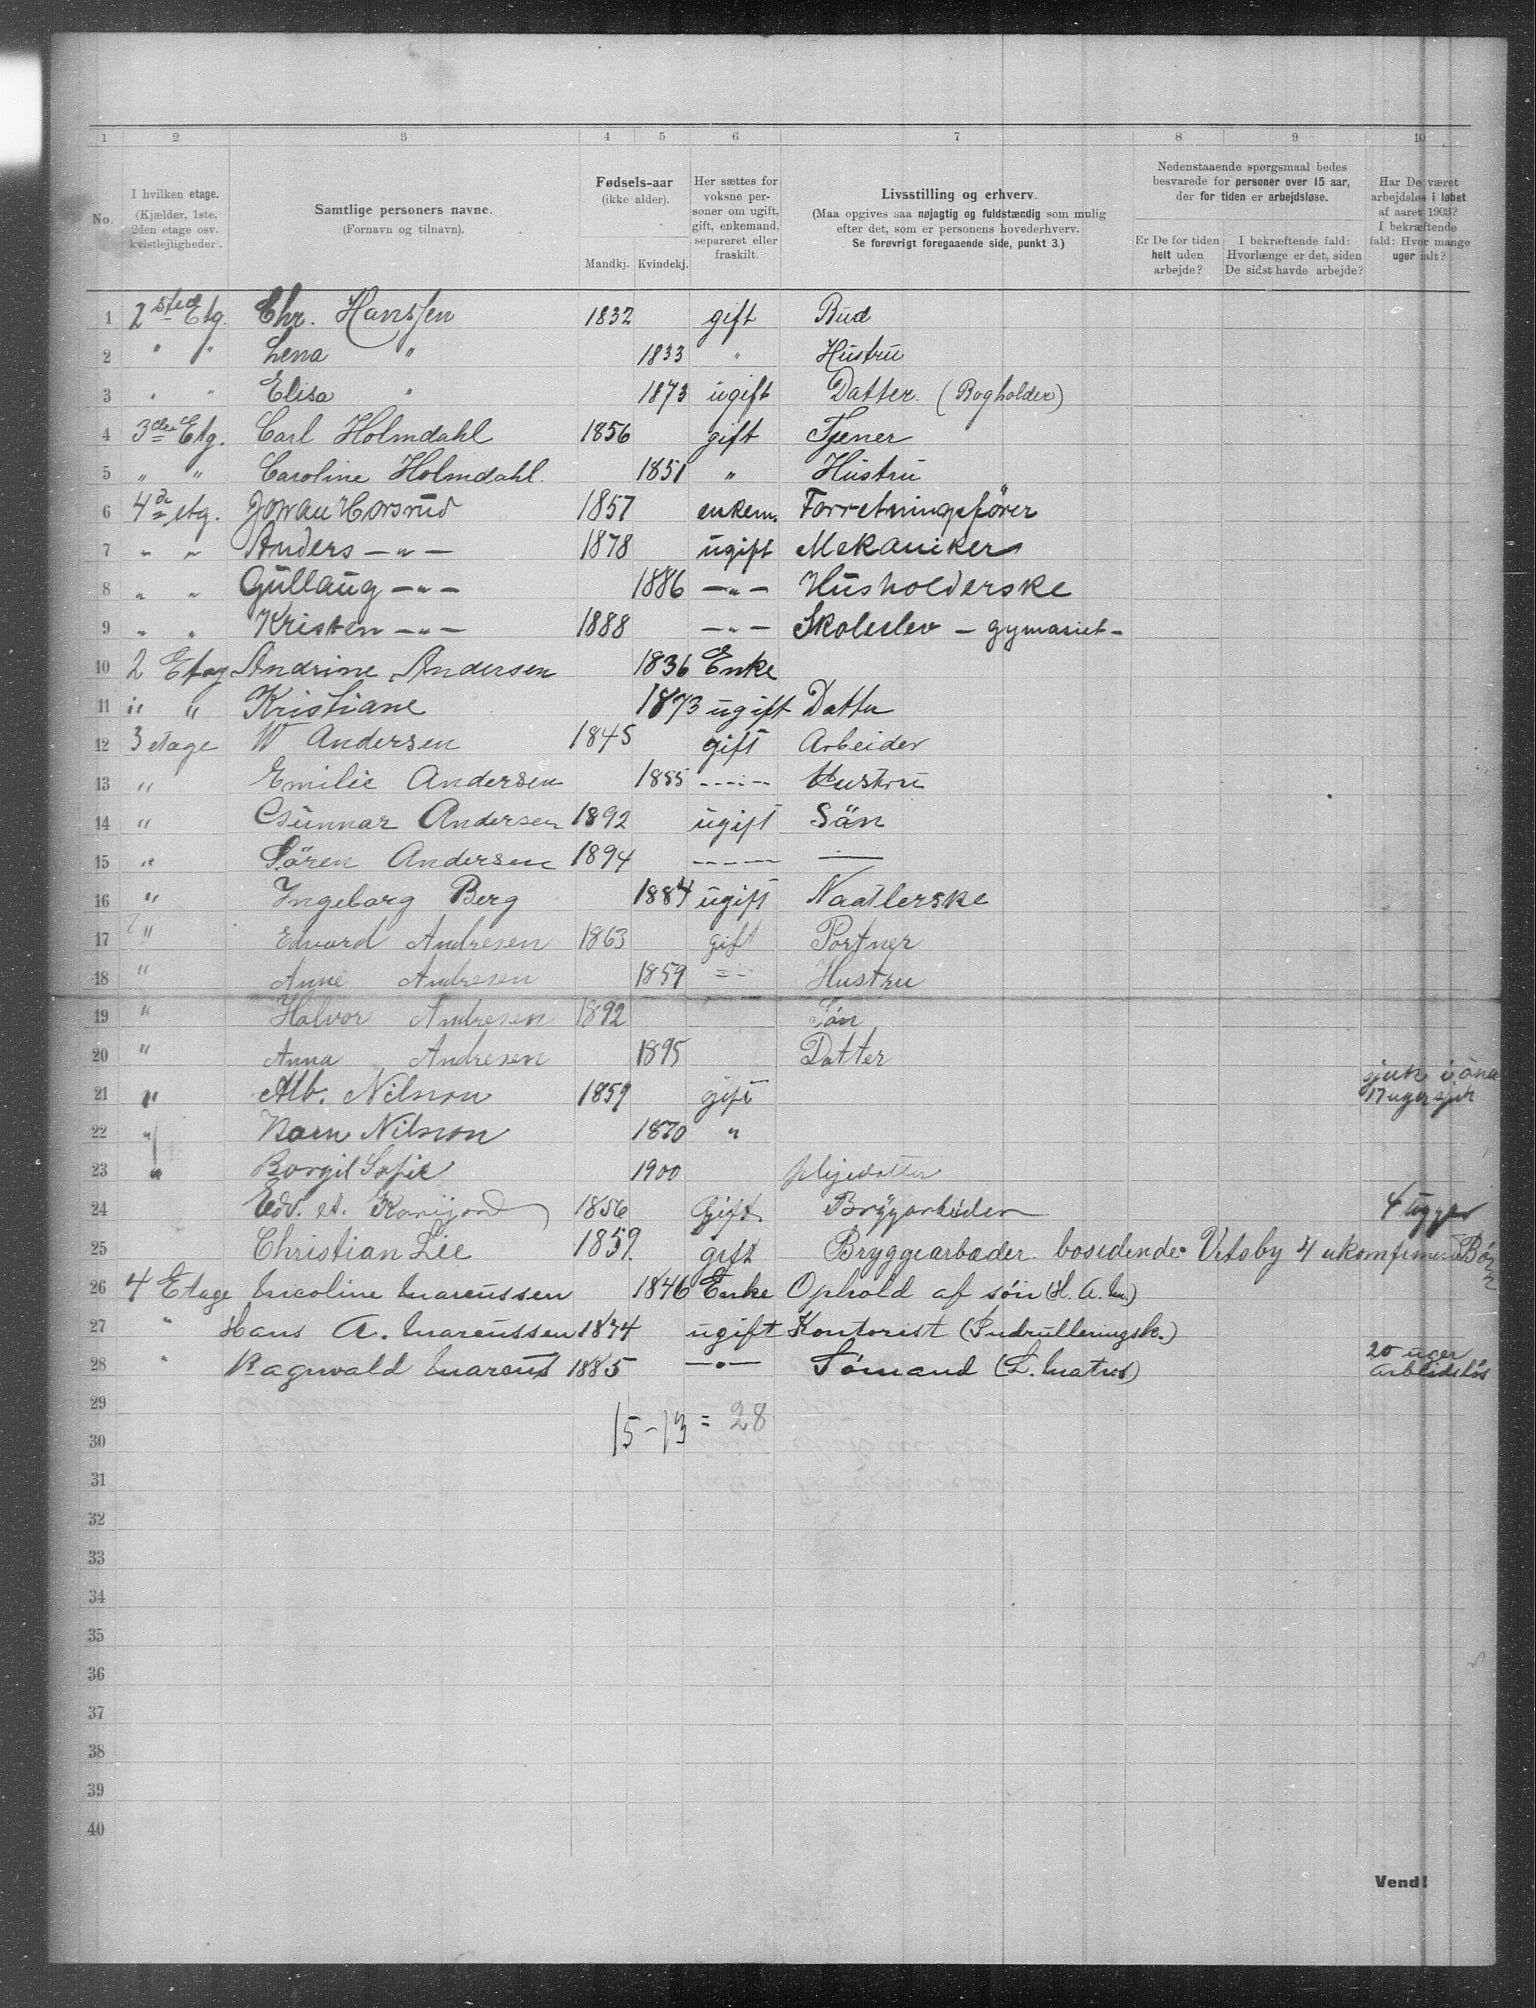 1 2 3 4 5 6 7 8 9 10
No. I hvilken etage. (Kjælder, 1ste, 2den etage osv. kvistlejligheder). Samtlige personers navne. (Fornavn og tilnavn). Fødsels-aar (ikke alder). Mandkj. Kvindekj. Her sættes for voksne personer om ugift, gift, enkemand, separeret eller fraskilt. Livsstilling og erhverv. (Maa opgives saa nøjagtig og fuldstændig som mulig efter det, som er personens hovederhverv. Se forøvrigt foregaaende side, punkt 3.) Nedenstaaende spørgsmaal bedes besvarede for personer over 15 aar, der for tiden er arbejdsløse. Er De for tiden helt uden arbejde? I bekræftende fald: Hvorlænge er det, siden De sidst havde arbejde? Har De været arbejdsløs i løbet af aaret 1903? I bekræftende fald: Hvor mange uger ialt?
1 2 Etg. Chr. Hanssen 1832 gift Bud
2 " " Lena " 1833 " Hustru
3 " " Elisa " 1873 ugift Datter. (Bogholder)
4 3die Etg. Carl Holmdahl 1856 gift Tjener
5 " " Caroline Holmdahl. 1851 " Hustru
6 4de etg. Johan Horsrud 1857 enkem. Forretningsfører
7 " " Anders — " — 1878 ugift Mekaniker
8 " " Gullaug — " — 1886 — " — Husholderske
9 " " Kristen — " — 1888 — " — Skoleelev - gymasiet -
10 2 Etag Andrine Andersen 1836 Enke
11 " " Kristiane 1873 ugift Datter
12 3 etage W Andersen 1845 gift Arbeider
13 " Emilie Andersen 1855 ----- Hustru
14 " Gunnar Andersen 1892 ugift Sön
15 " Sören Andersen 1894 ----- —
16 " Ingeborg Berg 1884 ugift Naatlerske
17 " Edvard Andresen 1863 gift Portner
18 " Anne Andresen 1859 " Hustru
19 " Halvor Andresen 1892 Søn
20 " Anna Andresen 1895 Datter
21 " Alb. Nilsson 1859 gift 17 uger
22 " Karn Nilsson 1870 "
23 " Borgil Sofie 1900 plejedatter
24 Edv. 1856 Gift Bryggarbeider 4
25 Christian Lie 1859. gift Bryggearbæder bosidende 4 ukonfirmerd Börn
26 4 Etage Nicoline Marcussen 1846 Enke Ophold af søn (H. A. M.)
27 " Hans A. Marcussen 1874 ugift Kontorist (Indrulleringsk.)
28 " Ragnvald Marcus 1885 — " — Sømand (L. Matros) 20 uger arbeidsløs
29 15 - 13 = 28
30
31
32
33
34
35
36
37
38
39
40
Vend!